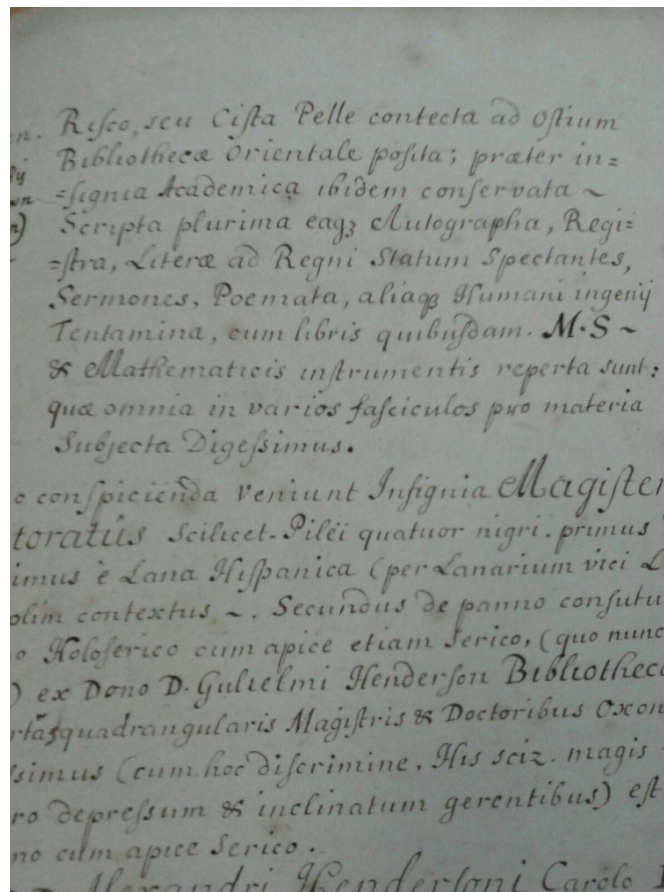 Risco, seu Cista Pelle contecta ad Ostium
Bibliothecæ Orientale posita; præter in=
=signia Academica ibidem conservata ~
Scripta plurima eaqꝫ Autographa, Regi=
=stra, Literæ ad Regni Statum Spectantes,
Sermones, Poemata, aliaqꝫ Humani ingenij
Tentamina, cum libris quibusdam. M.S ~
& Mathematicis instrumentis reperta sunt:
quæ omnia in varios fasciculos pro materia
Subjecta Digessimus.
o conspicienda veniunt Insignia Magister
toratûs Scilicet-Pilëi quatuor nigri. primus
imus è Lana Hispanica (per Lanarium vici L
olim contextus ~. Secundus de panno consutu
o Holoserico cum apice etiam Serico, (quo nunc
) ex Dono D. Gulielmi Henderson Bibliotheca
quadrangularis Magistris & Doctoribus Oxon
ssimus (cum hoc discrimine, His sciz. magis
ro depressum & inclinatum gerentibus) est
no cum apice Serico.
Alexandri Hendersoni Carolo